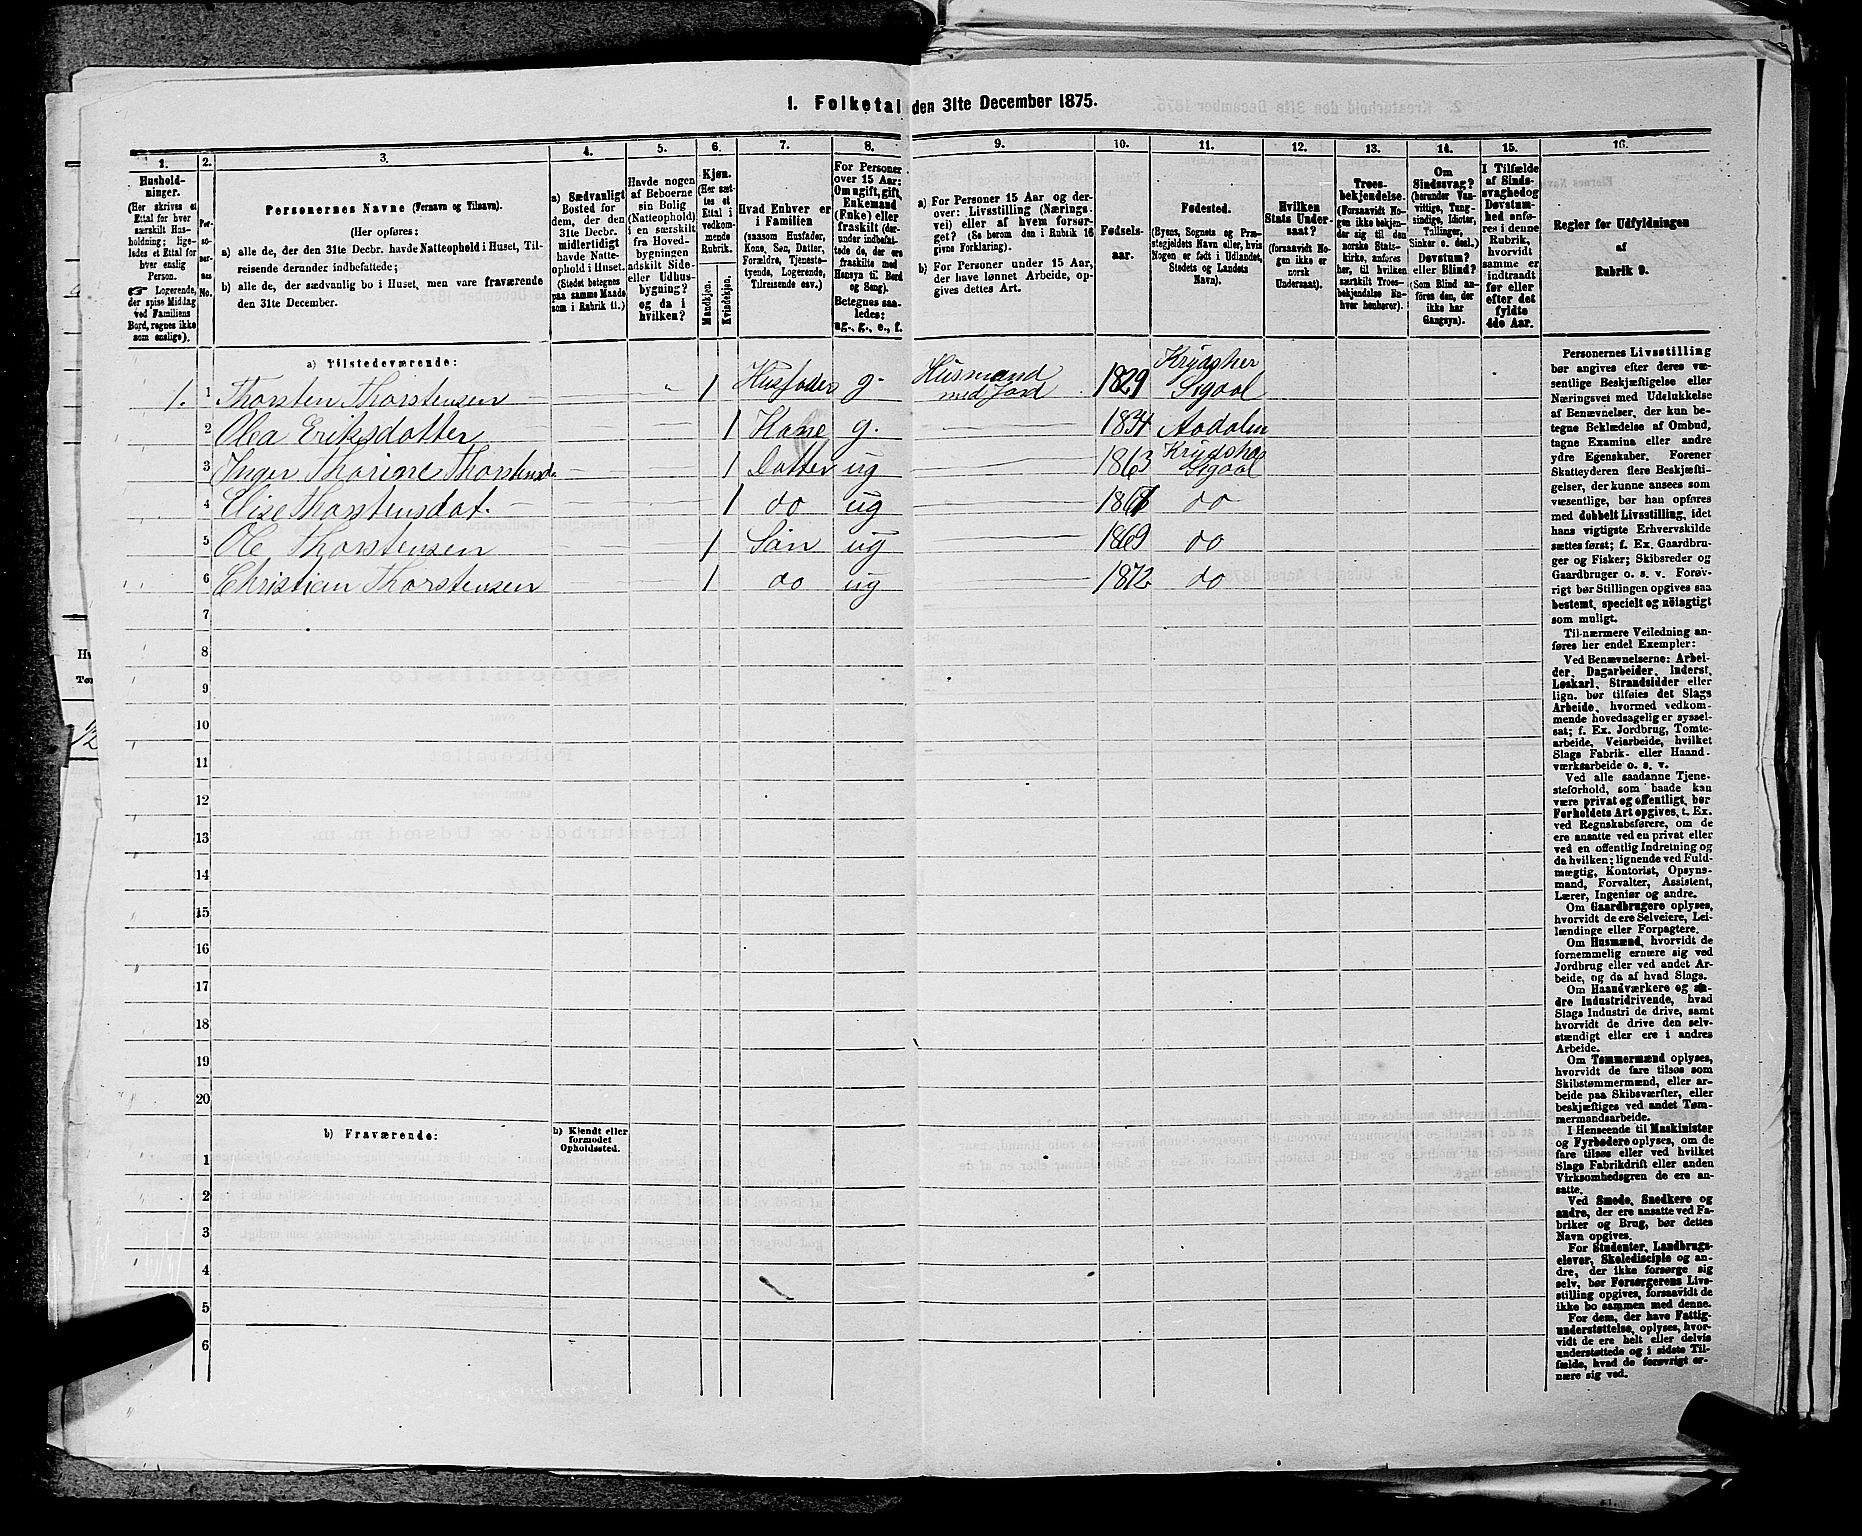 1. Folketal den 31te December 1875.
1.
2.
3.
4.
5.
6.
7.
8.
9.
10.
11.
12.
13.
14.
15.
16.
Hushold-
ninger.
(Her skrives et
Ettal for hver
særskilt Hus-
holdning; lige-
ledes et Ettal for
hver enslig
Person.
☞ Logerende,
der spise Middag
ved Familiens
Bord, regnes ikke
som enslige).
Per-
so-
ner-
nes
No.
Personernes Navne (Fornavn og Tilnavn).
(Her opføres:
a) alle de, der den 31te Decbr. havde Natteophold i Huset, Til-
reisende derunder indbefattede;
b) alle de, der sædvanlig bo i Huset, men vare fraværende
den 31te December.
a) Sædvanligt
Bosted for
dem, der den
31te Decbr.
midlertidigt
havde Natte-
ophold i Huset.
(Stedet betegnes
paa samme Maade
som i Rubrik 11.)
Havde nogen
af Beboerne
sin Bolig
(Natteophold)
i en særskilt
fra Hoved-
bygningen
adskilt Side-
eller Udhus-
bygning?
og da i
hvilken?
Kjøn.
(Her sæt-
tes et
Ettal i
vedkom-
mende
Rubrik.
Mandkjøn.
Kvindekjøn.
Hvad Enhver er
i Familien
(saasom Husfader,
Kone, Søn, Datter,
Forældre, Tjeneste-
tyende, Logerende,
Tilreisende osv.)
For Personer
over 15 Aar:
Om ugift, gift,
Enkemand
(Enke) eller
fraskilt (der-
under indbefat-
tede de, der ere
fraskilte med
Hensyn til Bord
og Seng).
Betegnes saa-
ledes:
ug., g., e., f.
a) For Personer 15 Aar og der-
over: Livsstilling (Nærings-
vei) eller af hvem forsør-
get? (Se herom den i Rubrik 16
givne Forklaring).
b) For Personer under 15 Aar,
der have lønnet Arbeide, op-
gives dettes Art.
Fødsels-
aar.
Fødested.
(Byens, Sognets og Præ-
stegjeldets Navn eller, hvis
Nogen er født i Udlandet,
Stedets og Landets
Navn).
Hvilken
Stats Under-
saat?
(forsaavidt No-
gen ikke er
norsk
Undersaat).
Troes-
bekjendelse.
(Forsaavidt No-
gen ikke bekjen-
der sig til den
norske Stats-
kirke, anføres
her, til hvilken
særskilt Troes-
bekjendelse En-
hver henhører).
Om
Sindssvag?
(herunder Van-
vittige, Tung-
sindige, Idioter,
Tullinger,
Sinker o. desl.)
Døvstum?
eller Blind?
(Som Blind an-
føres den, der
ikke har
Gangsyn).
I Tilfælde
af Sinds-
svaghed og
Døvstum-
hed anfø-
res i denne
Rubrik,
hvorvidt
samme er
indtraadt
før eller
efter det
fyldte
4de Aar.
Regler for Udfyldningen
af
Rubrik 9.
a) Tilstedeværende:
1. 1 Thorsten Thorstensen 1 Husfader g. Husmand med Jord 1829 Krydsher Sigdal
2 Olea Eriksdatter 1 Kone g. 1834 Aadalen
3 Inger Thorine Thorstensd. 1 Datter ug 1863 Krydsher Sigdal
4 Elise Thorstensdat. 1 do ug do
5 Ole Thorstensen 1 Søn ug 1869 do
6 Christian Thorstensen 1 do ug 1872 do
7
8
9
10
11
12
13
14
15
16
17
18
19
20
b) Fraværende:
b) Kjendt eller
formodet
Opholdssted.
1
2
3
4
5
6
Personernes Livsstilling
bør angives efter deres væ-
sentlige Beskjæftigelse eller
Næringsvei med Udelukkelse
af Benævnelser, der kun be-
tegne Beklædelse af Ombud,
tagne Examina eller andre
ydre Egenskaber. Forener
Skatteyderen flere Beskjæfti-
gelser, der kunne ansees som
væsentlige, bør han opføres
med dobbelt Livsstilling, idet
hans vigtigste Erhvervskilde
sættes først; f. Ex. Gaardbru-
ger og Fisker; Skibsreder og
Gaardbruger o. s. v. Forøv-
rigt bør Stillingen opgives saa
bestemt, specielt og nöiagtigt
som muligt.
Til nærmere Veiledning an-
føres her endel Exempler:
Ved Benævnelserne: Arbei-
der, Dagarbeider, Inderst,
Løskarl, Strandsidder eller
lign. bør tilføies det Slags
Arbeide, hvormed vedkom-
mende hovedsagelig er syssel-
sat; f. Ex. Jordbrug, Tomte-
arbeide, Veiarbeide, hvilket
Slags Fabrik- eller Haand-
værksarbeide o. s. v.
Ved alle saadanne Tjene-
steforhold, som baade kan
være privat og offentligt, bør
Forholdets Art opgives, t. Ex.
ved Regnskabsførere, om de
ere ansatte ved en privat eller
ved en offentlig Indretning og
da hvilken; lignende ved Fuld-
mægtig, Kontorist, Opsyns-
mand, Forvalter, Assistent,
Lærer, Ingeniør og andre.
Om Gaardbrugere oplyses,
hvorvidt de ere Selveiere, Lei-
lændinge eller Forpagtere.
Om Husmænd, hvorvidt de
fornemmelig ernære sig ved
Jordbrug eller ved andet Ar-
beide, og da af hvad Slags.
Om Haandværkere og an-
dre Industridrivende, hvad
Slags Industri de drive, samt
hvorvidt de drive den selv-
stændigt eller ere i andres
Arbeide.
Om Tømmermænd oplyses,
hvorvidt de fare tilsøs som
Skibstømmermænd, eller ar-
beide paa Skibsværfter, eller
beskjæftiges ved andet Tøm-
mermandsarbeide.
I Henseende til Maskinister
og Fyrbødere oplyses, om de
fare tilsøs eller ved hvilket
Slags Fabrikdrift eller anden
Virksomhedsgren de ere an-
satte.
Ved Smede, Snedkere og
andre, der ere ansatte ved Fa-
briker og Brug, bør dettes
Navn opgives.
For Studenter, Landbrugs-
elever, Skoledisciple og an-
dre, der ikke forsørge sig
selv, bør Forsørgerens Livs-
stilling opgives, forsaavidt de
ikke bo sammen med denne.
For dem, der have Fattig-
understøttelse, oplyses, hvor-
vidt de ere helt eller delvis
understøttede og i sidste Til-
fælde, hvad de forøvrigt er-
nære sig ved.